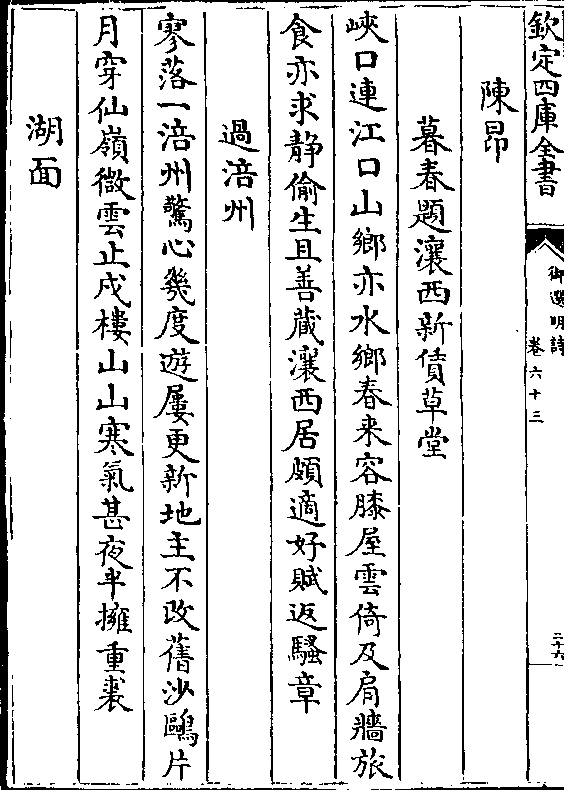 欽定四庫全書
御選明詩
卷六十三
二十六
陳昂
暮春題瀼西新僦草堂
峽口連江口山鄉亦水鄉春来容膝屋雲倚及肩牆旅
食亦求静偷生且善藏瀼西居頗適好賦返騷章
過涪州
寥落一涪州驚心幾度遊屢更新地主不改舊沙鷗片
月穿仙嶺微雲止戍樓山山寒氣甚夜半擁重裘
湖面